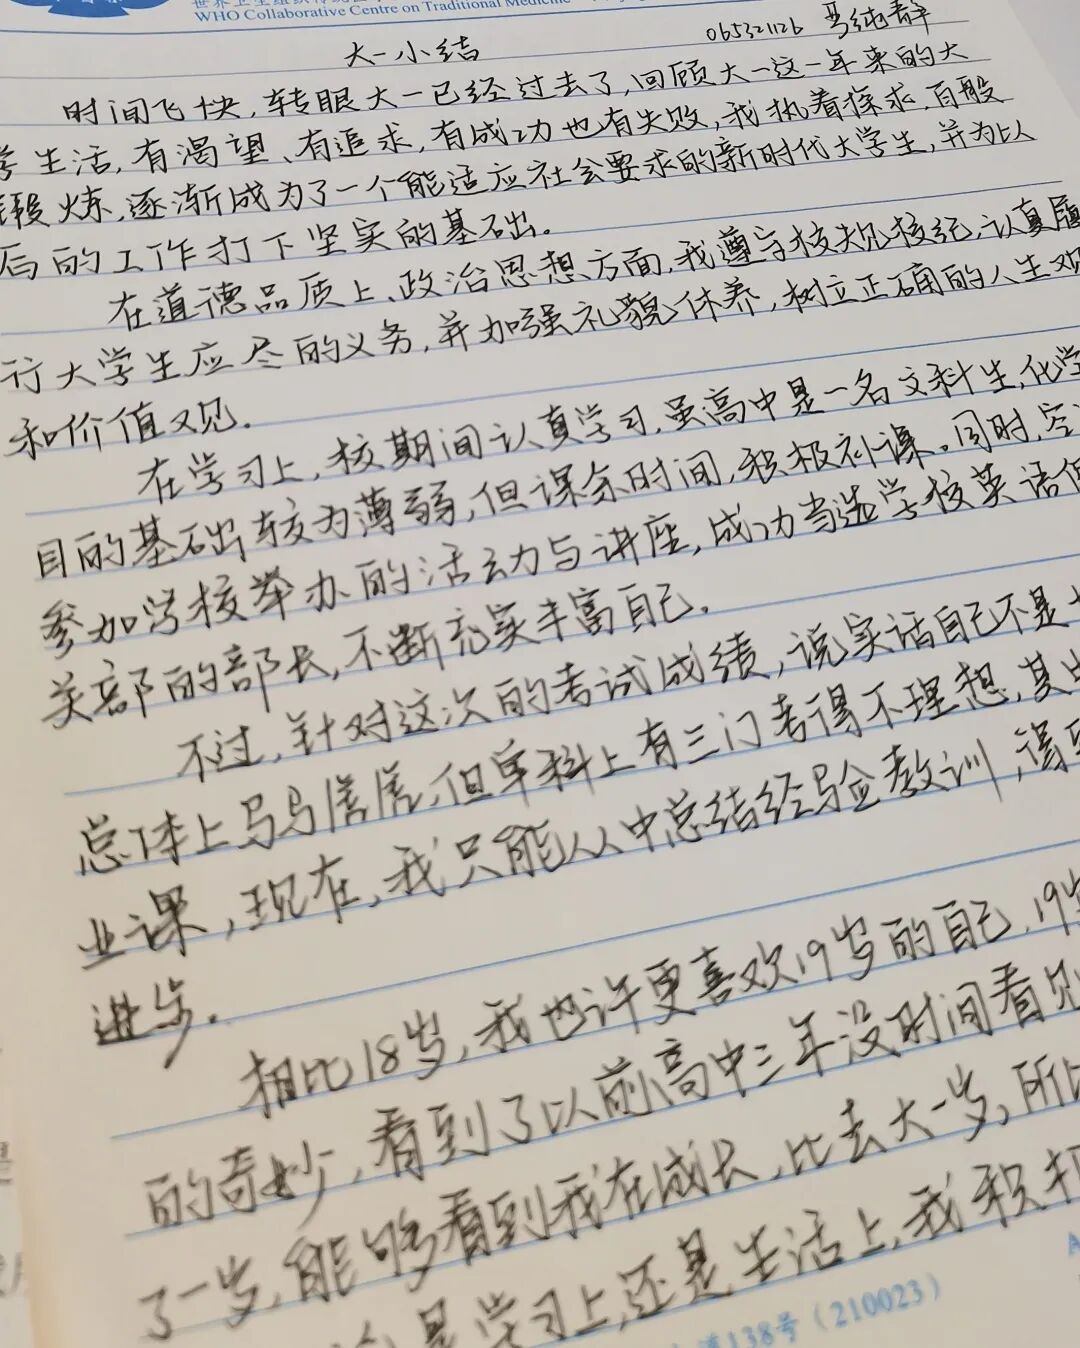 WHO Collaborative Centre on Traditional Medicine
大一小结 065321126 马纯静
时间飞快,转眼大一已经过去了,回顾大一这一年来的大
学生活,有渴望、有追求,有成功也有失败,我执着探求,百般
锻炼,逐渐成为了一个能适应社会要求的新时代大学生,并为以
后的工作打下坚实的基础。
在道德品质上、政治思想方面,我遵守校规校纪,认真履
行大学生应尽的义务,并加强礼貌休养,树立正确的人生观
和价值观.
在学习上,校期间认真学习,虽高中是一名文科生,化学
目的基础较为薄弱,但课余时间,积极补课。同时,
参加学校举办的活动与讲座,成功当选学校英语俱
关部的部长,不断充实丰富自己.
不过,针对这次的考试成绩,说实话自己不是
总体上马马虎虎,但单科上有三门考得不理想,其中
业课,现在,我只能从中总结经验教训,得到
进步.
相比18岁,我也许更喜欢19岁的自己,19岁
的奇妙,看到了以前高中三年没时间看见
了一岁,能够看到我在成长,比去大一岁,所以
是学习上,还是生活上,我积极
138号(210023)